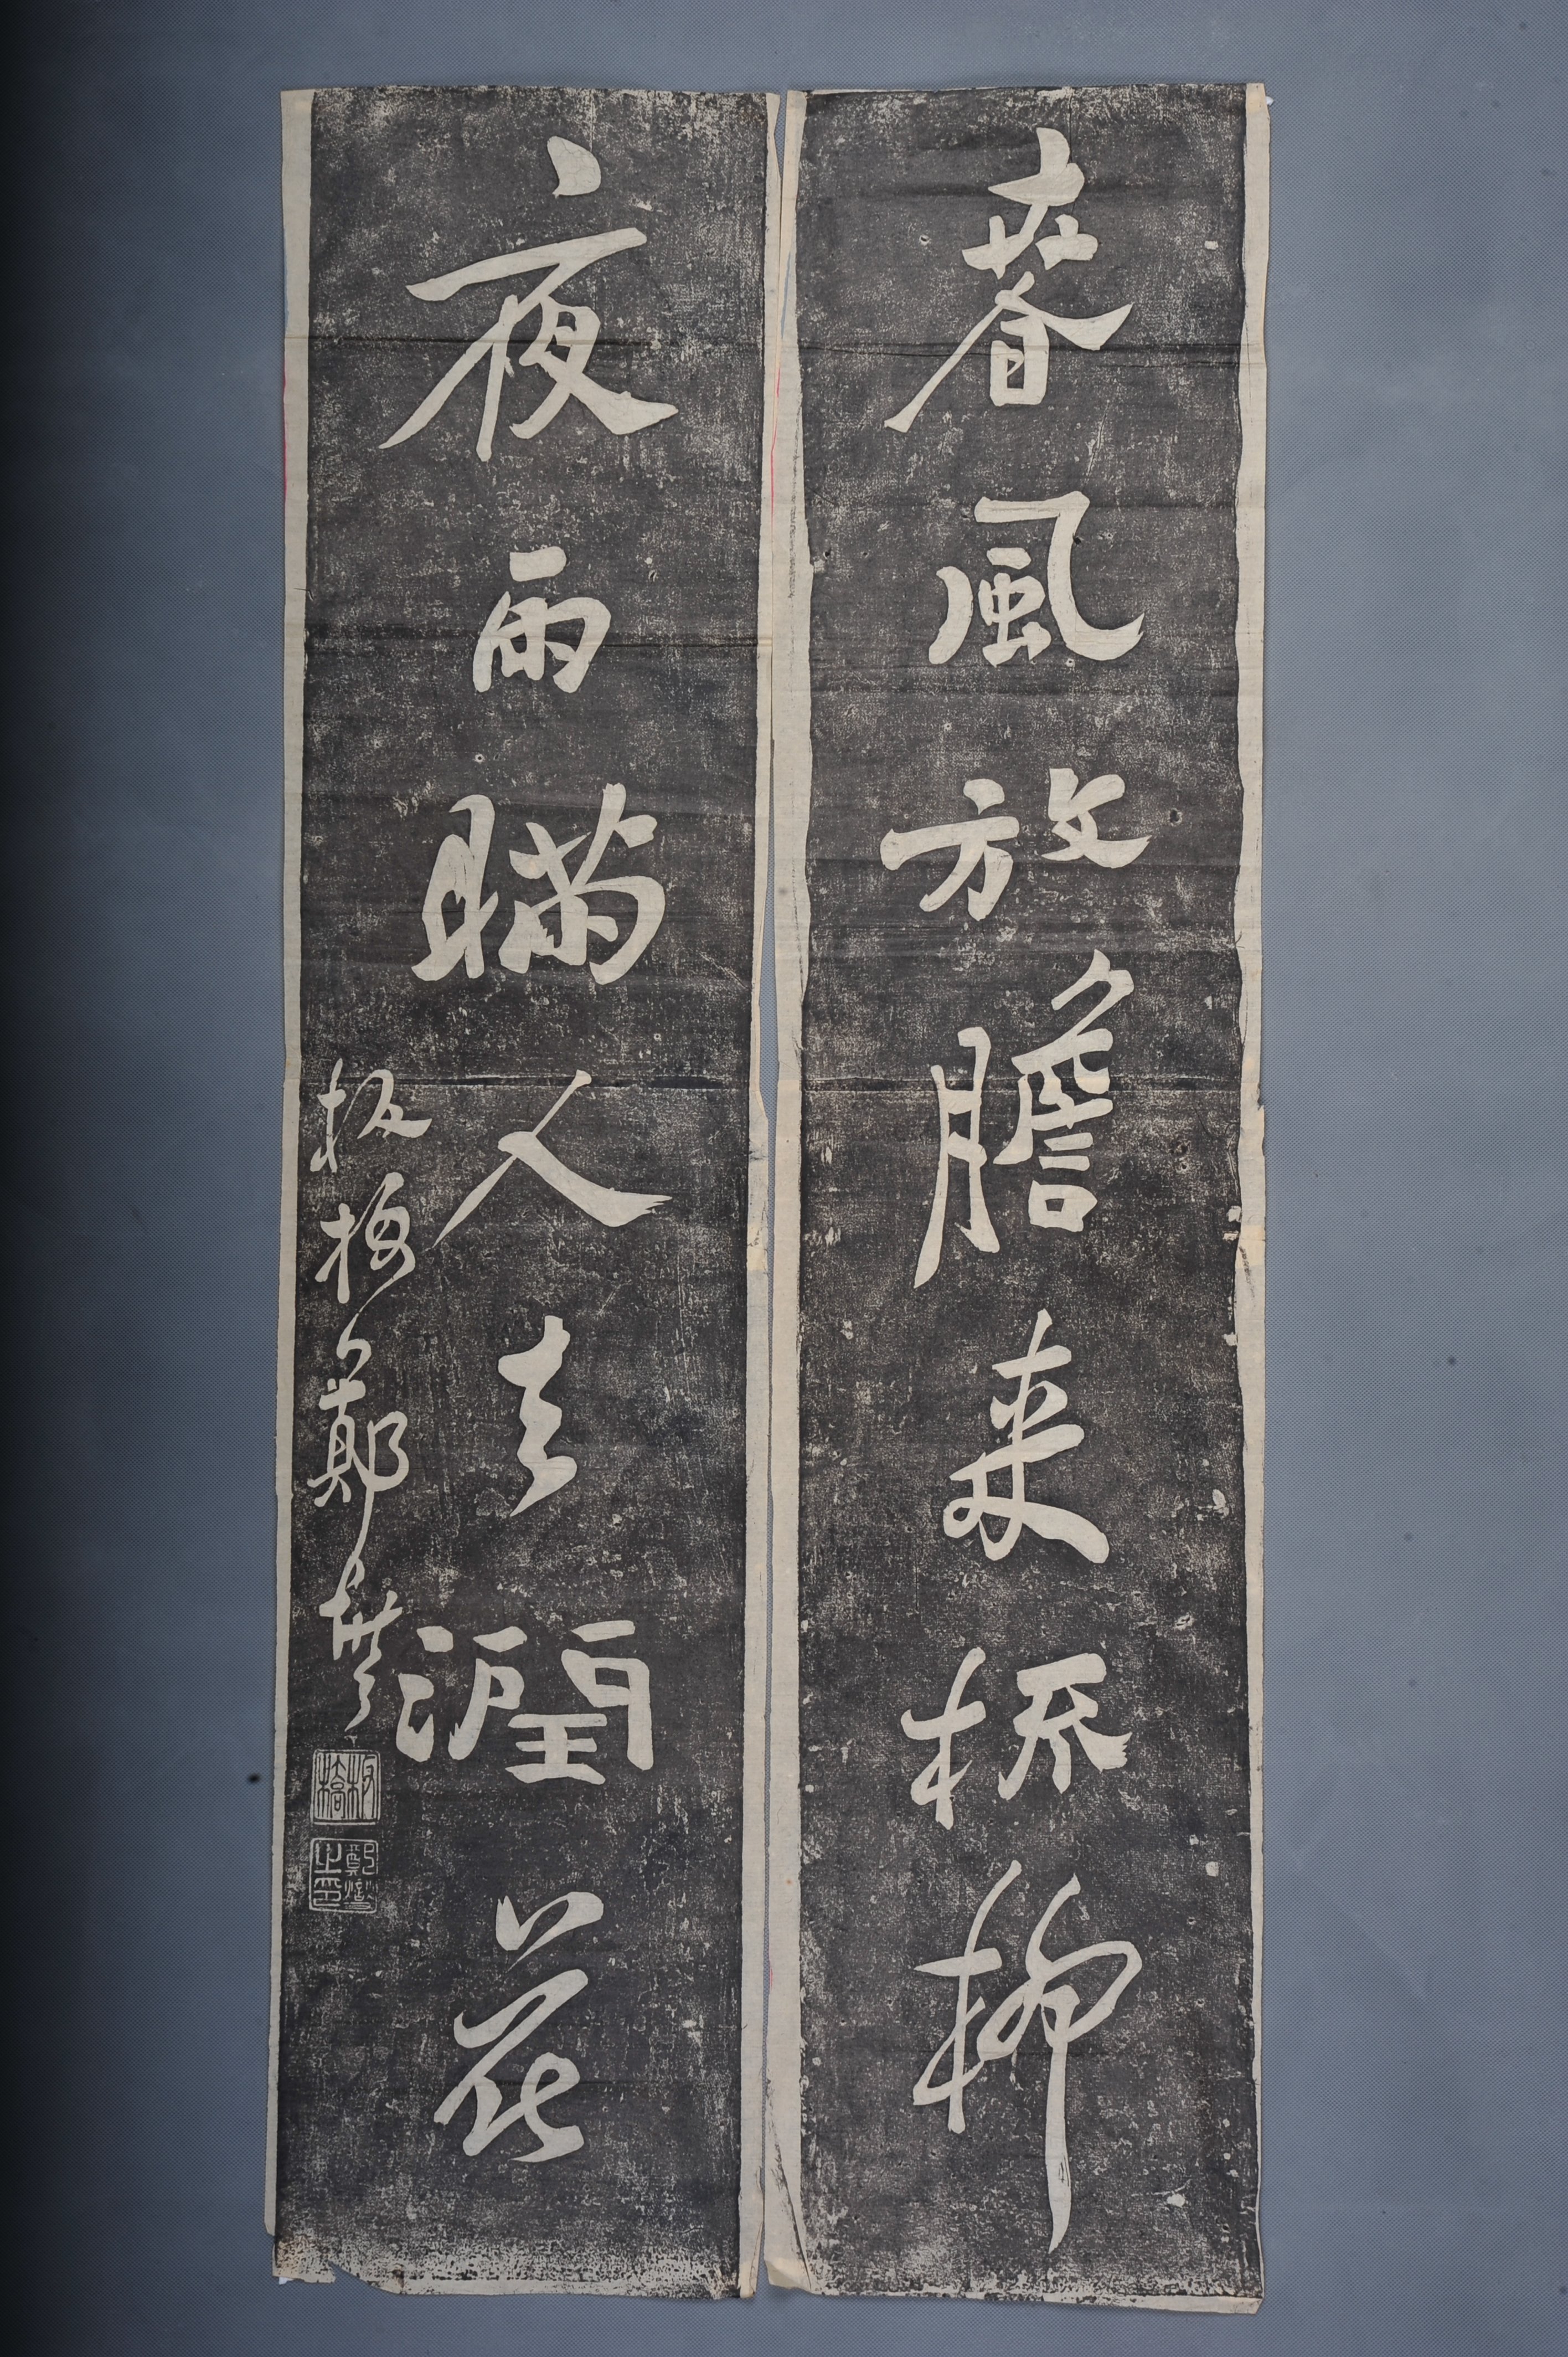 春風放膽来梳柳
夜雨瞞人去潤花
板橋鄭燮
板橋
鄭燮之印